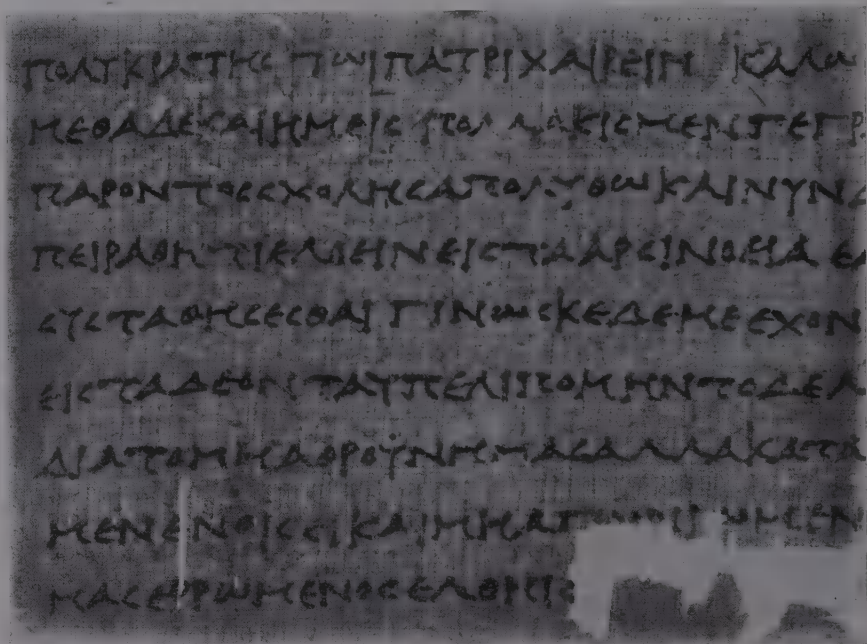 ΠΟΛΥΚΡΑΤΗΣ ΤΩΙ ΠΑΤΡΙ ΧΑΙΡΕΙΝ ΚΑΛΩ
ΜΕΘΑ ΔΕ ΚΑΙ ΗΜΕΙΣ ΠΟΛΛΑΚΙΣ ΜΕΝ ΓΕΓΡ
ΠΑΡΟΝΤΟΣ ΣΧΟΛΗΣ ΑΠΟΛΥΘΩ ΚΑΙ ΝΥΝ Δ
ΠΕΙΡΑΘΗΤΙ ΕΛΘΕΙΝ ΕΙΣ ΤΑ ΑΡΣΙΝΟΕΙΑ ΕΑ
ΣΥΣΤΑΘΗΣΕΣΘΑΙ ΓΙΝΩΣΚΕ ΔΕ ΜΕ ΕΧΟΝ
ΕΙΣ ΤΑ ΔΕΟΝΤΑ ΥΠΕΛΙΠΟΜΗΝ ΤΟ ΔΕ Λ
ΔΙΑ ΤΟ ΜΗ ΑΘΡΟΥΝ ΗΜΑΣ ΑΛΛΑ ΚΑΤΑ
ΜΕΝ ΕΝ ΟΙΣ ΕΙ ΚΑΙ ΜΗ
ΜΑΣ ΕΡΡΩΜΕΝΟΣ ΕΛΘΗΙΣ